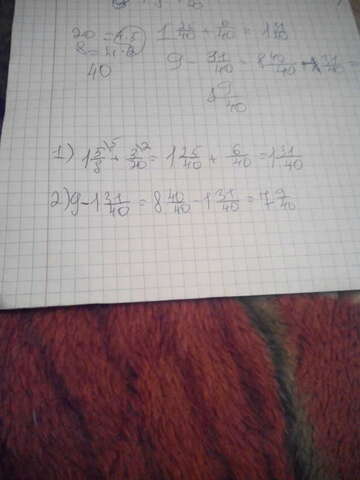 20 = 4·5
8 = 4·2
40
1 25/40 + 6/40 = 1 31/40
9 - 31/40 = 8 40/40 - 1 31/40 =
8 9/40
1) 1 5/8 \5 + 3/20 \2 = 1 25/40 + 6/40 = 1 31/40
2) 9 - 1 31/40 = 8 40/40 - 1 31/40 = 7 9/40